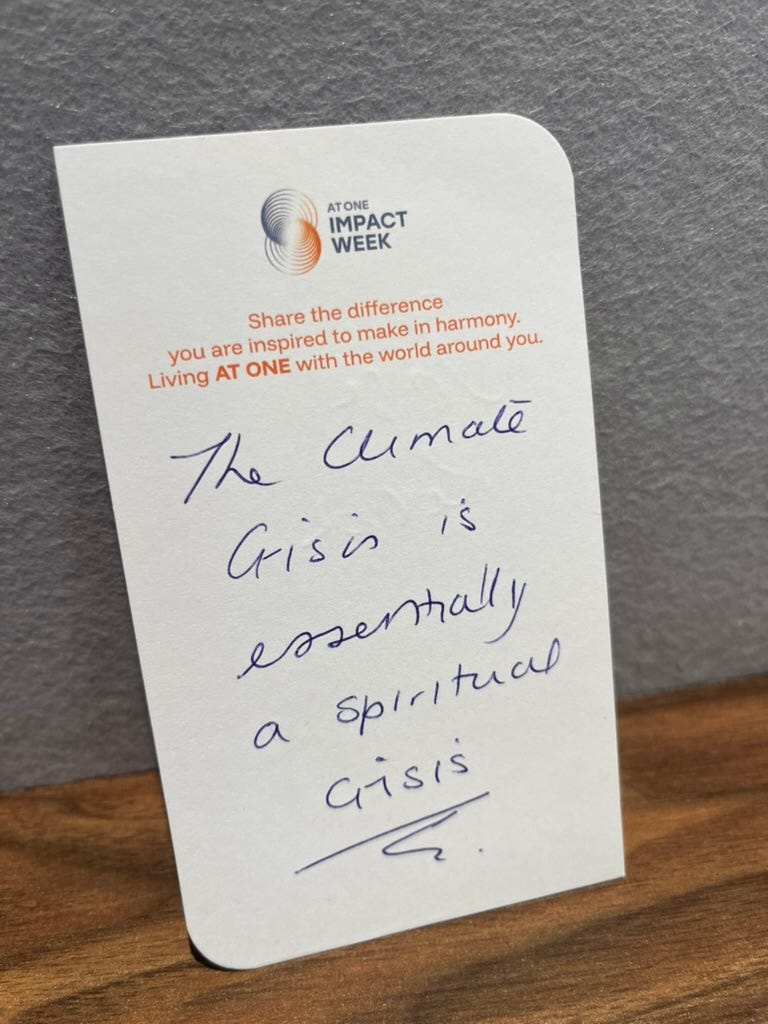 AT ONE
IMPACT
WEEK
Share the difference
you are inspired to make in harmony.
Living AT ONE with the world around you.
The Climate
Crisis is
essentially
a spiritual
Crisis